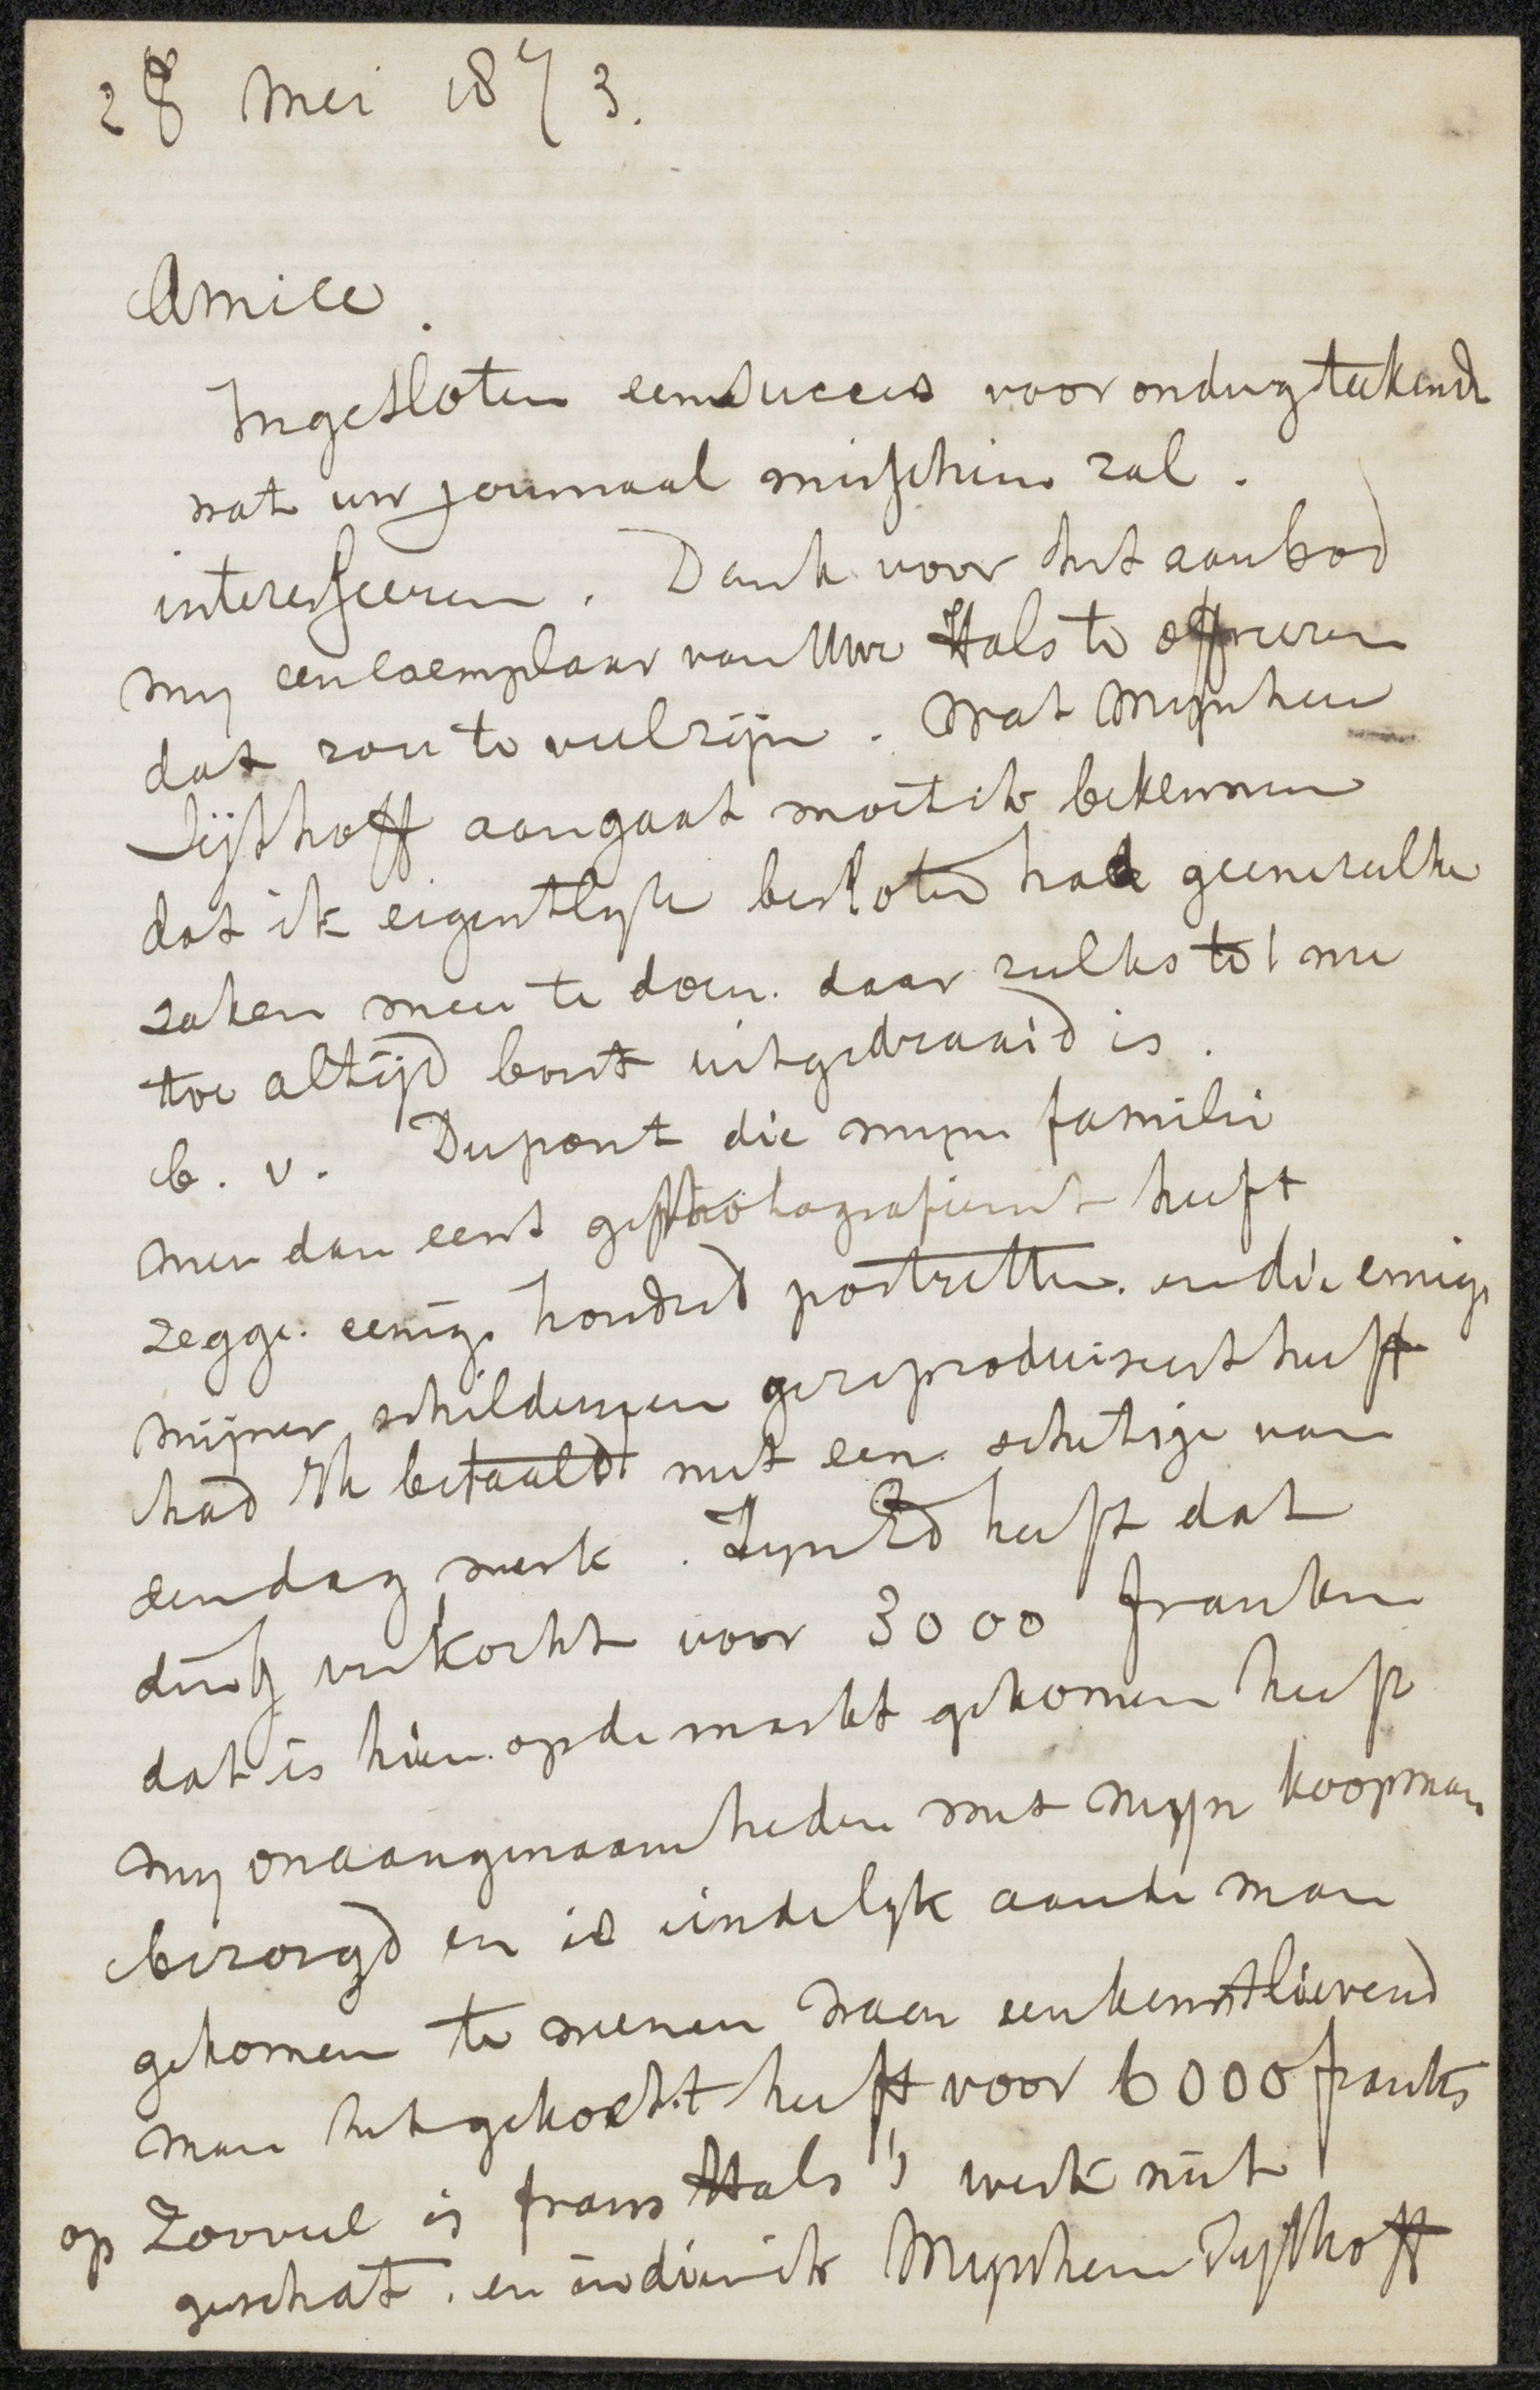 28 Mei 1873.
Amice.
Ingesloten een succes voor ondergeteekende
wat uw journaal misschien zal.
interesseeren. Dank voor het aanbod
my een exemplaar van Uwe Hals te offreeren
dat zou te veel zijn. Wat Mijnheer
Sijthoff aangaat moet ik bekennen
dat ik eigentlyk besloten had geene zulke
zaken meer te doen. daar zulks tot nu
toe altijd bont uitgedraaid is.
b. v. Dupont die myne familie
meer dan eens gephotografieerd heeft
zegge. eenige honderd portretten. en die eenige
mijner schilderyen gereproduiseert heeft
had ik betaald met een schetsje van
een dag werk. Zyn Ed heeft dat
ding verkocht voor 3000 franken
dat is hier op de markt gekomen heeft
my onaangenaamheden met myn koopman
bezorgd en is eindelyk aan de man
gekomen te weenen waar een kunstlievend
man het gekocht heeft voor 6000 franks
op Zooveel is frans Hals's werk niet
geschat. en indien ik Mynheer Sythoff